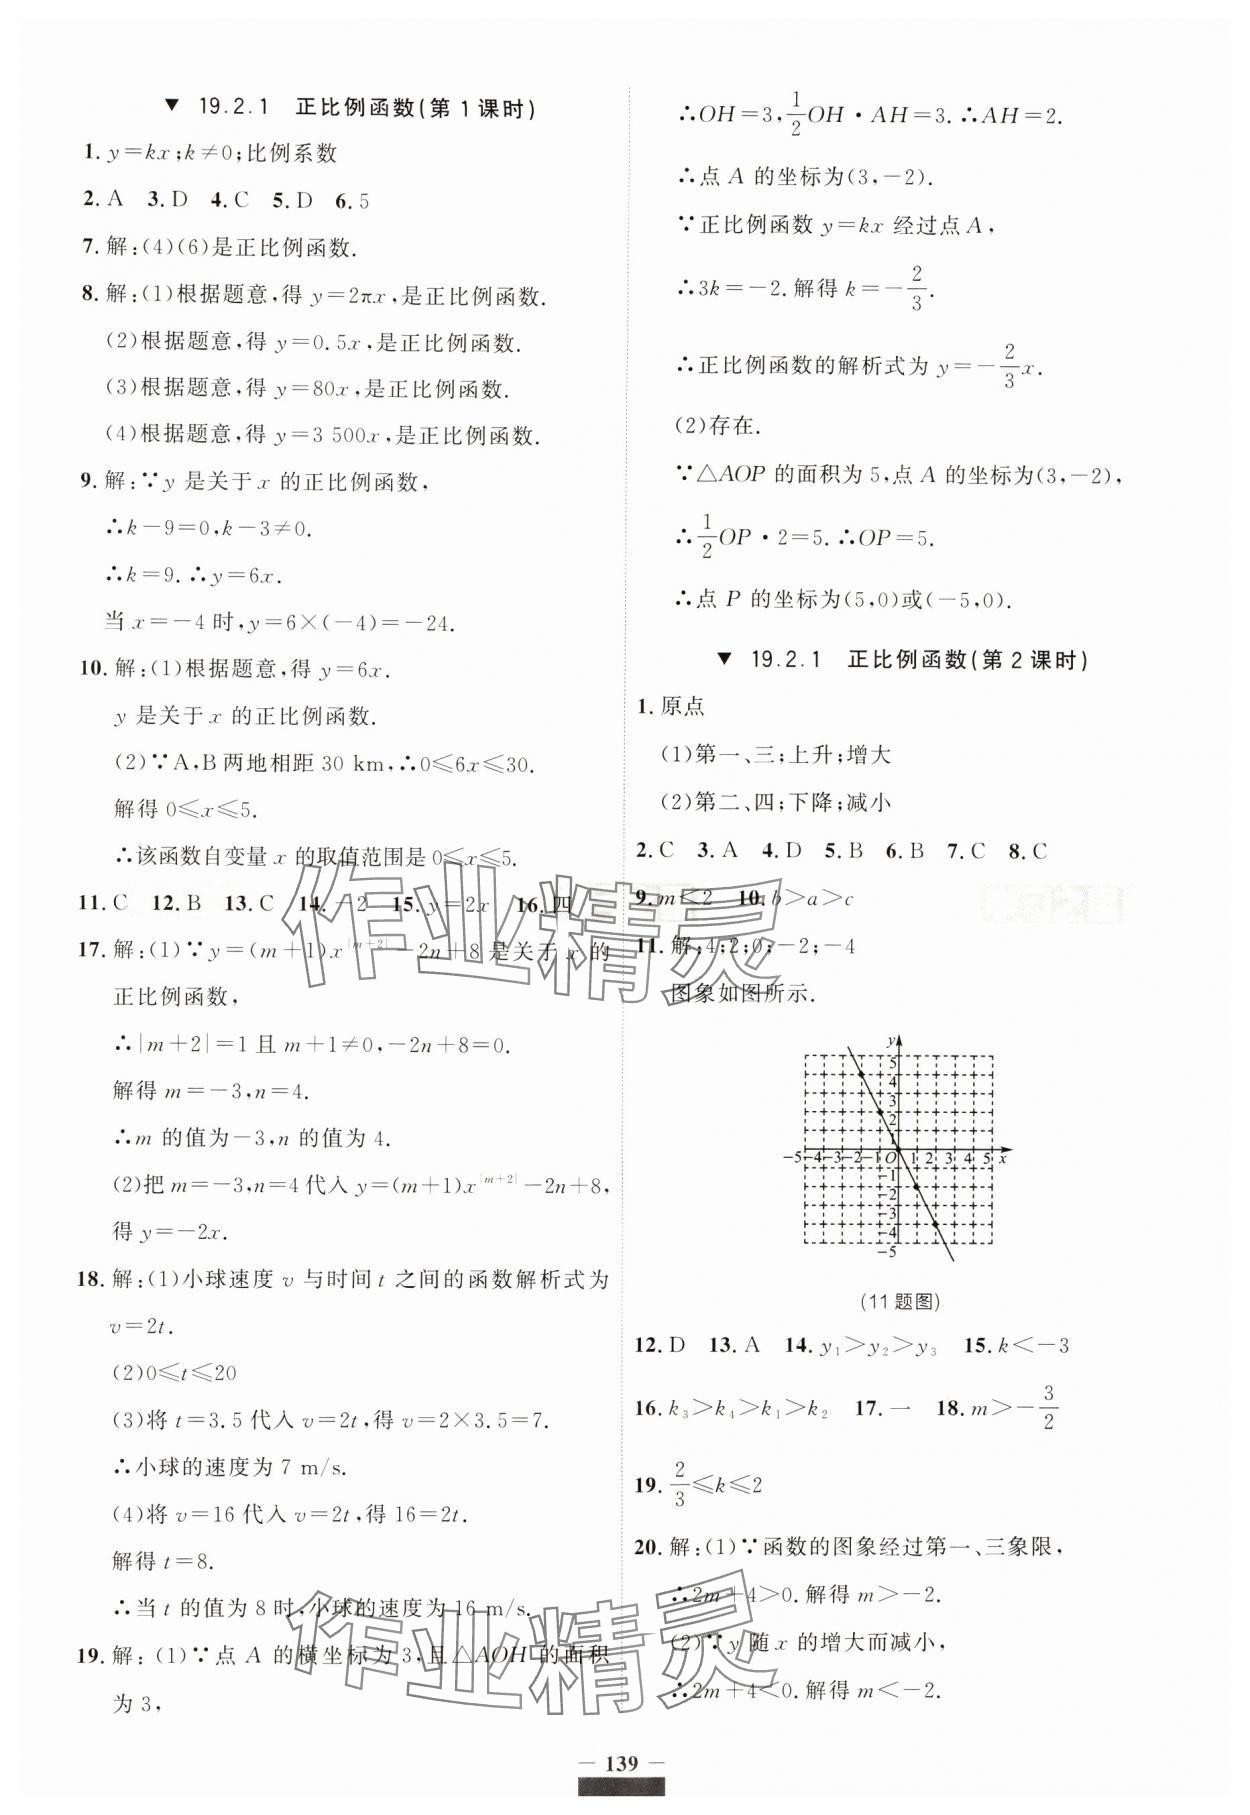 ▼ 19.2.1 正比例函数(第1课时)
1. y=kx;k≠0;比例系数
2. A 3. D 4. C 5. D 6. 5
7. 解:(4)(6)是正比例函数.
8. 解:(1)根据题意,得 y=2πx,是正比例函数.
(2)根据题意,得 y=0.5x,是正比例函数.
(3)根据题意,得 y=80x,是正比例函数.
(4)根据题意,得 y=3 500x,是正比例函数.
9. 解:∵y 是关于 x 的正比例函数,
∴k-9=0,k-3≠0.
∴k=9.∴y=6x.
当 x=-4 时,y=6×(-4)=-24.
10. 解:(1)根据题意,得 y=6x.
y 是关于 x 的正比例函数.
(2)∵A,B 两地相距 30 km,∴0≤6x≤30.
解得 0≤x≤5.
∴该函数自变量 x 的取值范围是 0≤x≤5.
11. C 12. B 13. C 14. -2 15. y=2x 16. 四
17. 解:(1)∵y=(m+1)x^|m+2|-2n+8 是关于 x 的
正比例函数,
∴|m+2|=1 且 m+1≠0,-2n+8=0.
解得 m=-3,n=4.
∴m 的值为-3,n 的值为 4.
(2)把 m=-3,n=4 代入 y=(m+1)x^|m+2|-2n+8,
得 y=-2x.
18. 解:(1)小球速度 v 与时间 t 之间的函数解析式为
v=2t.
(2)0≤t≤20
(3)将 t=3.5 代入 v=2t,得 v=2×3.5=7.
∴小球的速度为 7 m/s.
(4)将 v=16 代入 v=2t,得 16=2t.
解得 t=8.
∴当 t 的值为 8 时,小球的速度为 16 m/s.
19. 解:(1)∵点 A 的横坐标为 3,且△AOH 的面积
为 3,
∴OH=3,1/2 OH·AH=3.∴AH=2.
∴点 A 的坐标为(3,-2).
∵正比例函数 y=kx 经过点 A,
∴3k=-2.解得 k=-2/3.
∴正比例函数的解析式为 y=-2/3 x.
(2)存在.
∵△AOP 的面积为 5,点 A 的坐标为(3,-2),
∴1/2 OP·2=5.∴OP=5.
∴点 P 的坐标为(5,0)或(-5,0).
▼ 19.2.1 正比例函数(第2课时)
1. 原点
(1)第一、三;上升;增大
(2)第二、四;下降;减小
2. C 3. A 4. D 5. B 6. B 7. C 8. C
9. m<2 10. b>a>c
11. 解:4;2;0;-2;-4
图象如图所示.
y
5
4
3
2
1
-5 -4 -3 -2 -1 O 1 2 3 4 5 x
-1
-2
-3
-4
-5
(11题图)
12. D 13. A 14. y₁>y₂>y₃ 15. k<-3
16. k₃>k₄>k₁>k₂ 17. 一 18. m>-3/2
19. 2/3≤k≤2
20. 解:(1)∵函数的图象经过第一、三象限,
∴2m+4>0.解得 m>-2.
(2)∵y 随 x 的增大而减小,
∴2m+4<0.解得 m<-2.
作业精灵
作业精灵
— 139 —